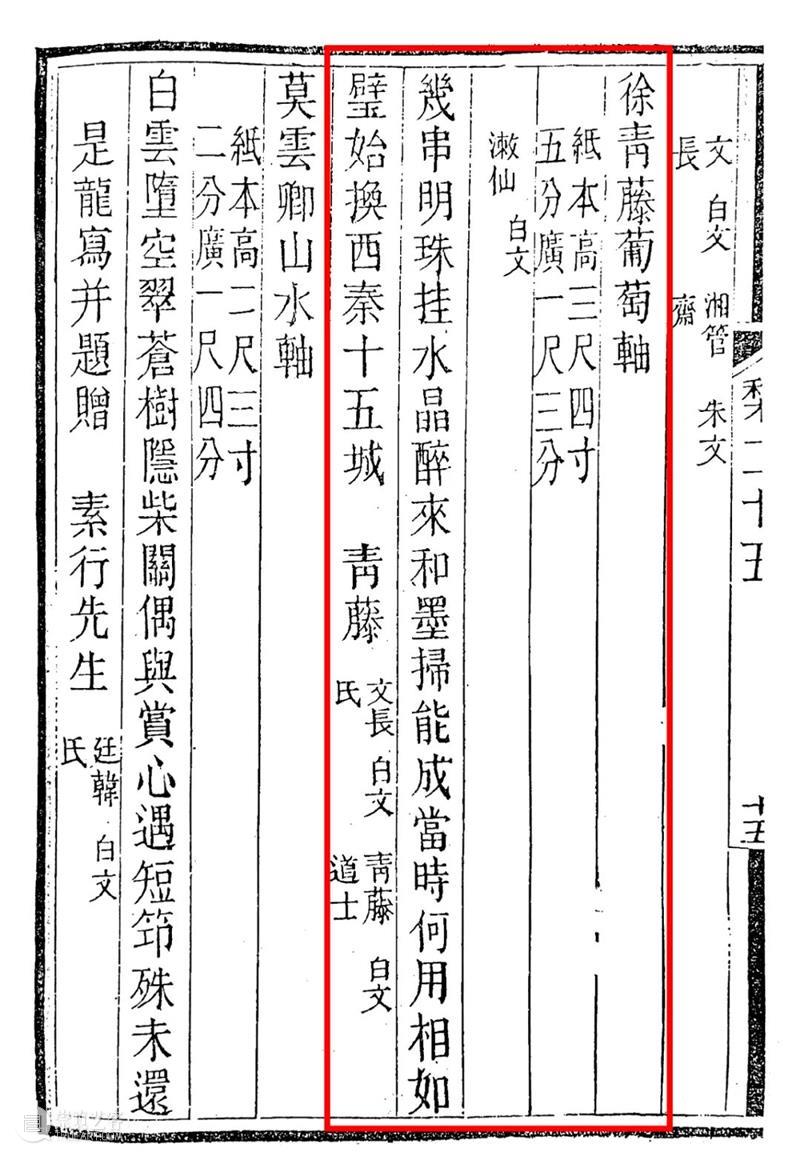 二十五
十五
文長 白文 湘管齋 朱文
徐青藤葡萄軸
紙本高三尺四寸
五分廣一尺三分
漱仙 白文
幾串明珠挂水晶醉來和墨掃能成當時何用相如
璧始換西秦十五城 青藤 文長氏 白文 青藤道士 白文
莫雲卿山水軸
紙本高二尺三寸
二分廣一尺四分
白雲墮空翠蒼樹隱柴關偶與賞心遇短笻殊未還
是龍寫并題贈 素行先生 廷韓氏 白文